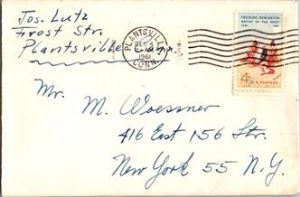 Jos. Lutz
Frost Str.
Plantsville Conn.
PLANTSVILLE
1961
CONN.
FREDERIC REMINGTON
ARTIST OF THE WEST
4¢
U.S. POSTAGE
Mr. M. Woessner
416 East 156 Str.
New York 55 N.Y.